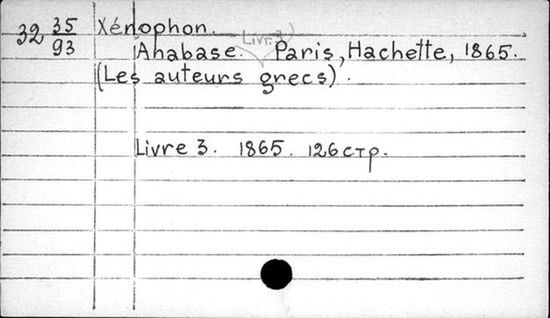 32 35/93 Xénophon.
Livr. 3
Anabase. Paris, Hachette, 1865.
(Les auteurs grecs).
Livre 3. 1865. 126 стр.